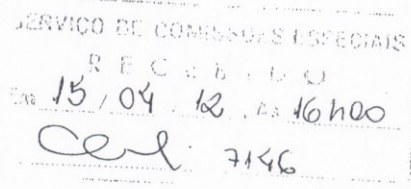 SERVIÇO DE COMISSÕES ESPECIAIS
RECEBIDO
Em 15 / 04 / 12, Às 16h00
7146